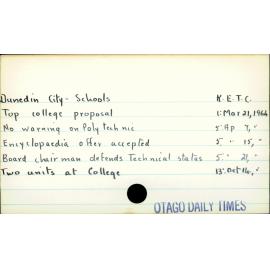 Dunedin City - Schools K.E.T.C.
Top college proposal 1: Mar 21, 1964
No warning on Polytechnic 5: Ap 7, "
Encyclopaedia offer accepted 5: " 15, "
Board chairman defends Technical status 5: " 21, "
Two units at College 13: Oct 14, "
OTAGO DAILY TIMES